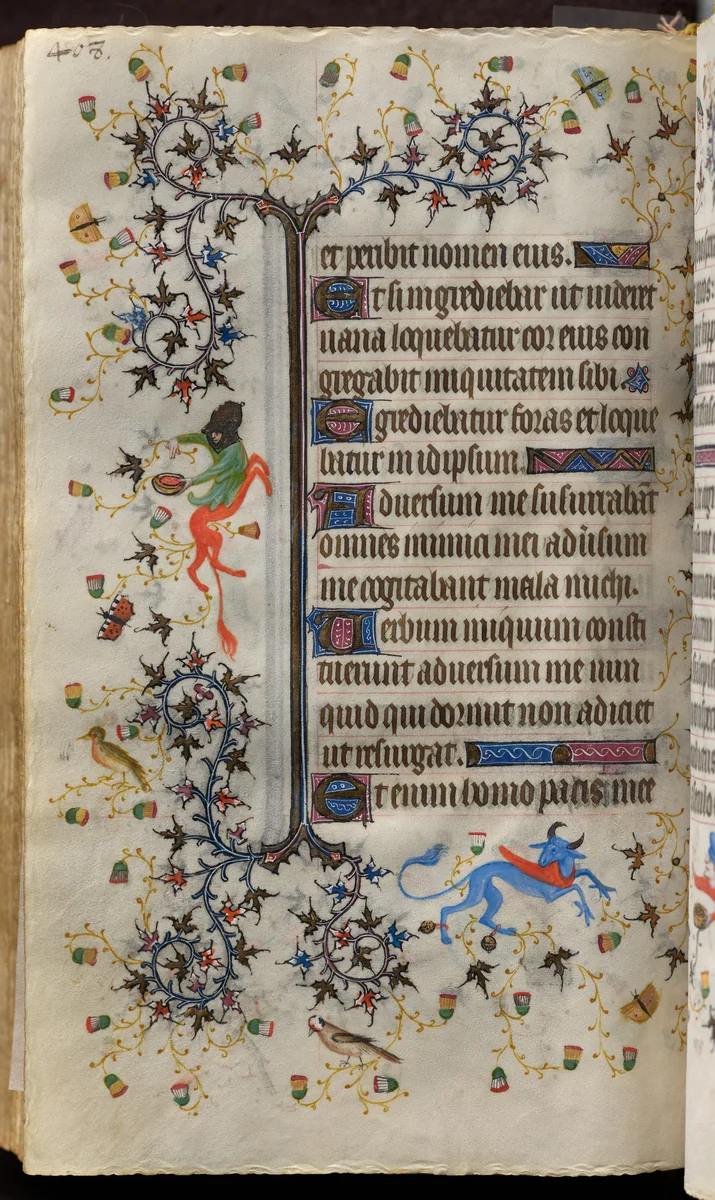 408.
et peribit nomen eius.
Et si ingrediebar ut uideret
uana loquebatur cor eius con
gregabit iniquitatem sibi
Egrediebatur foras et loque
batur in idipsum.
Aduersum me susurrabāt
omnes inimici mei adūsum
me cogitabant mala michi.
Uerbum iniquum consti
tuerunt aduersum me nun
quid qui dormit non adiciet
ut resurgat.
Etenim homo pacis mee